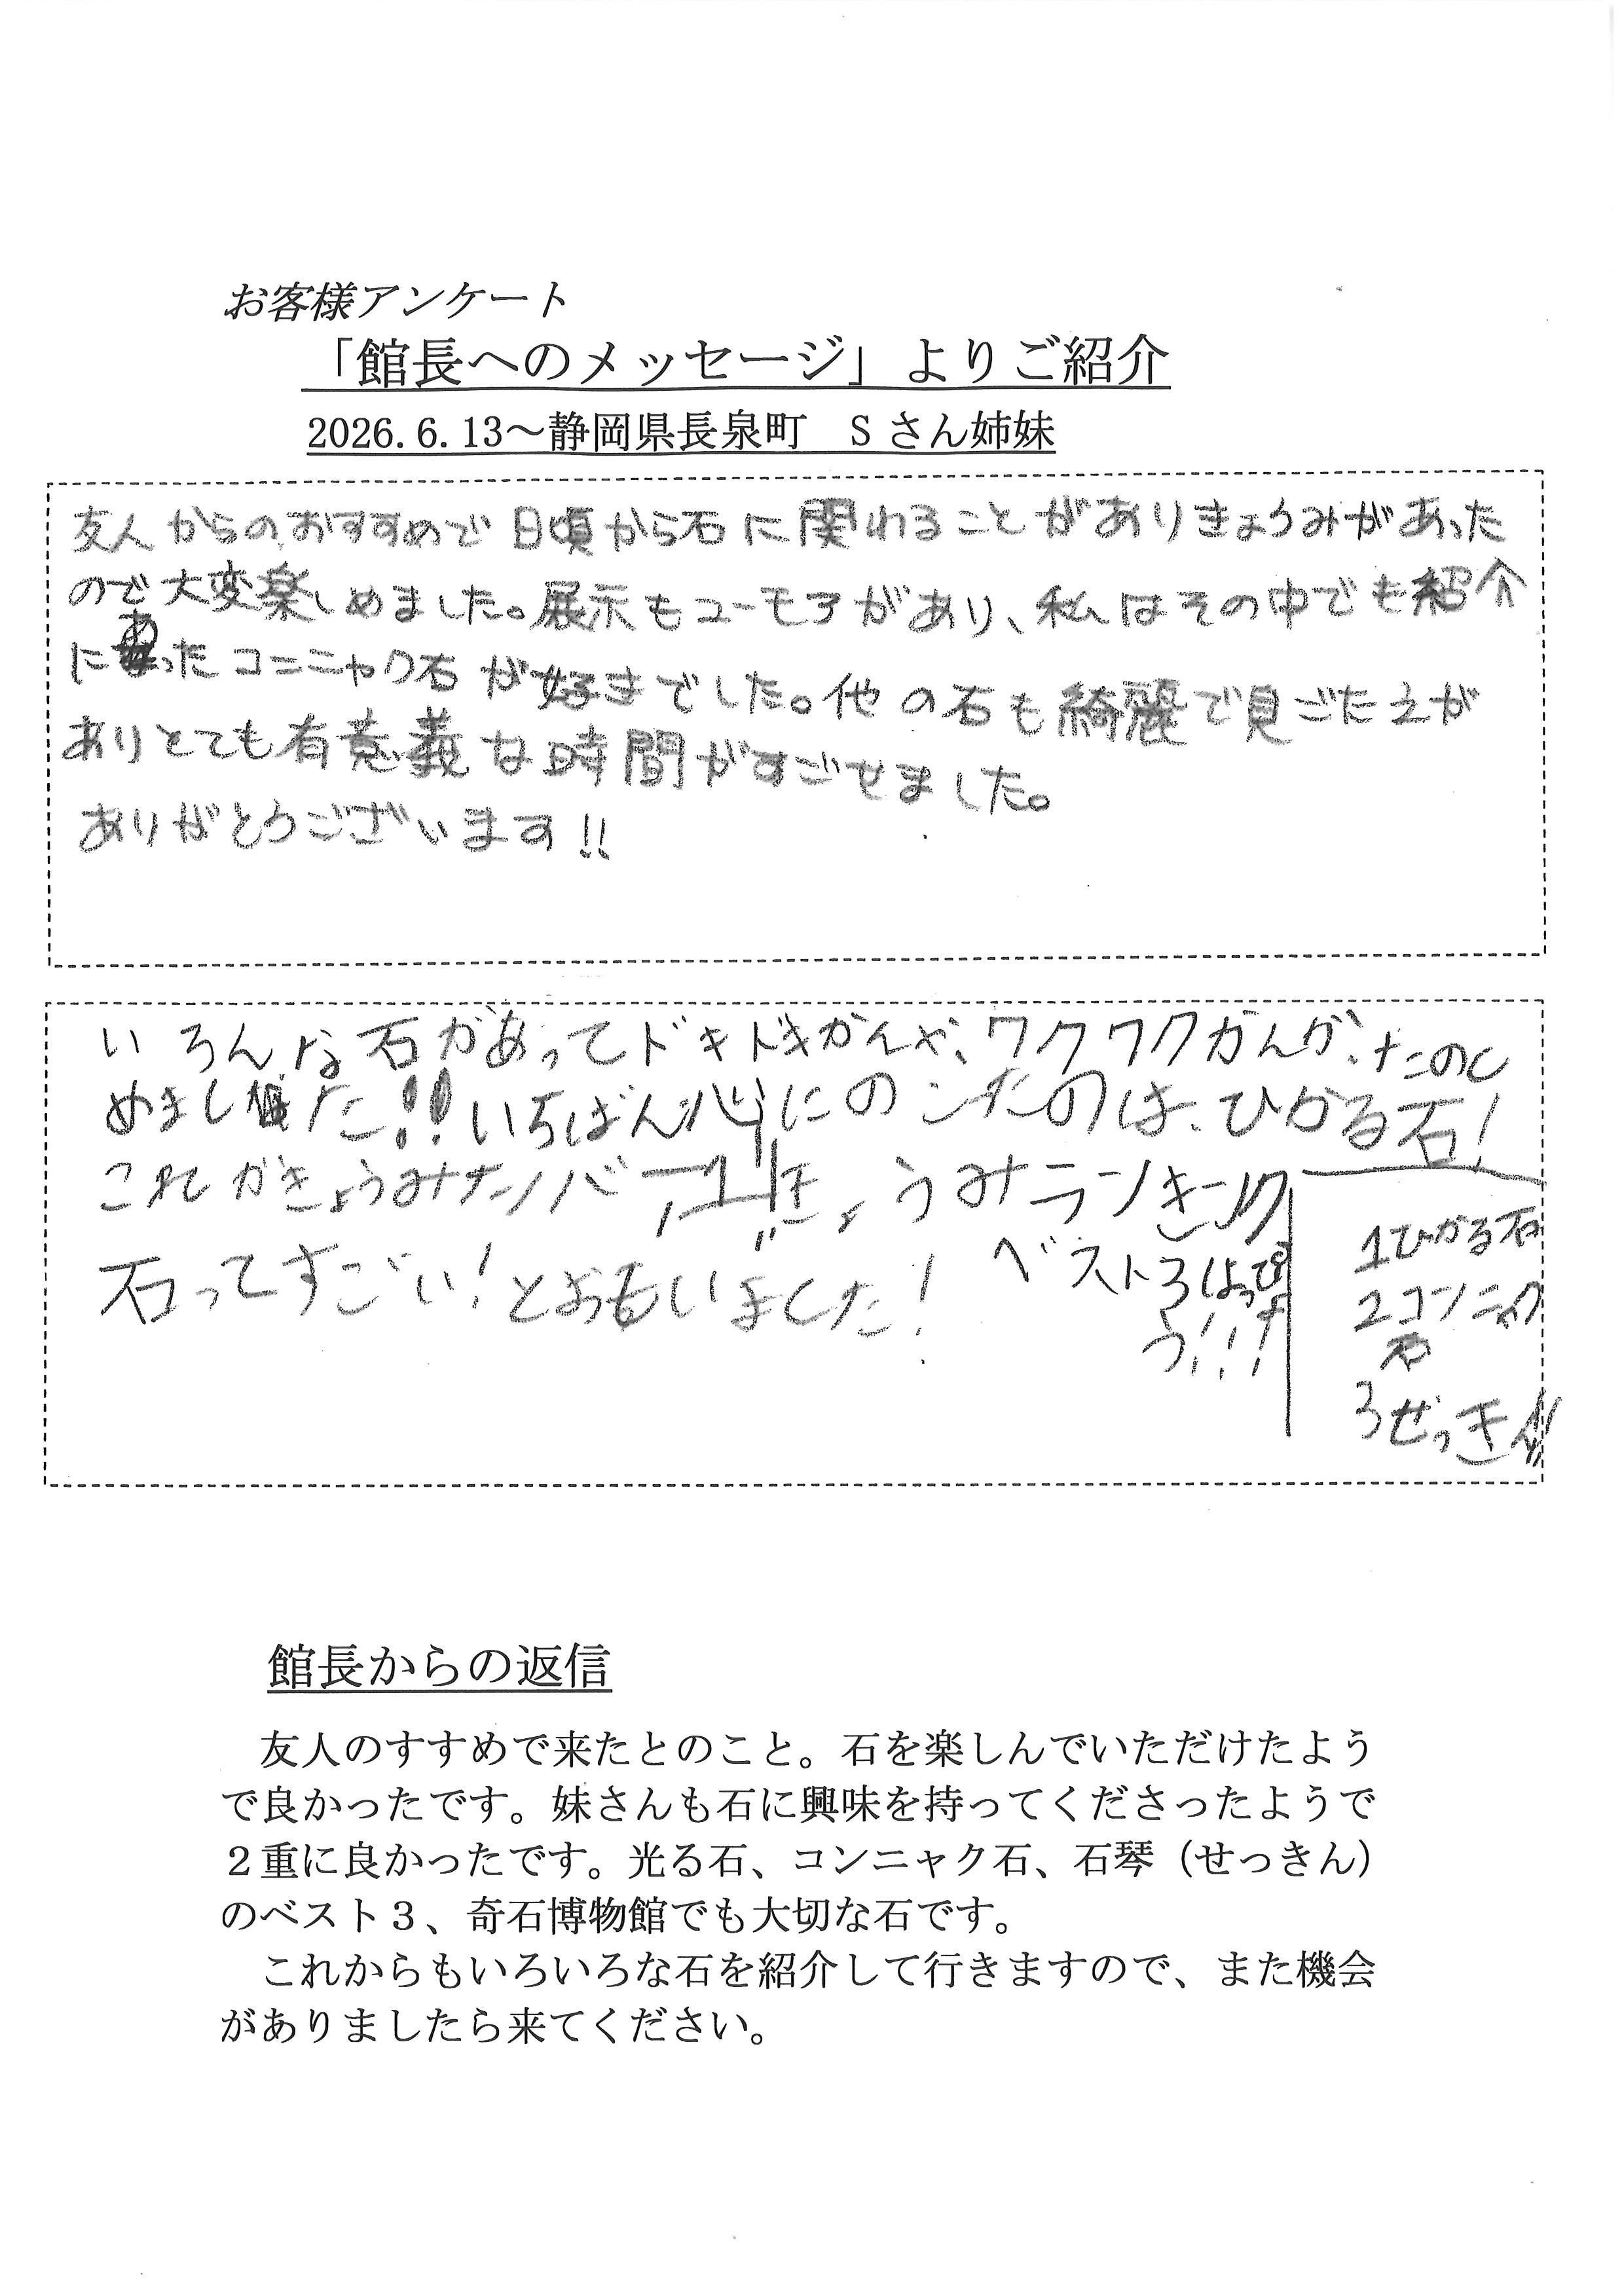 お客様アンケート
「館長へのメッセージ」よりご紹介
2026.6.13～静岡県長泉町　Sさん姉妹
友人からのおすすめで日頃から石に関わることがありきょうみがあった
ので大変楽しめました。展示もユーモアがあり、私はその中でも紹介
にあったコンニャク石が好きでした。他の石も綺麗で見ごたえが
ありとても有意義な時間がすごせました。
ありがとうございます!!
いろんな石があってドキドキかんや、ワクワクかんが、たのし
めました!!いちばん心にのこったのは、ひかる石!
これがきょうみナンバー1!!
石ってすごい!とおもいました!
きょうみランキング
ベスト3はっぴょ
う!!!
1ひかる石
2コンニャク
石
3せっきん!!
館長からの返信
友人のすすめで来たとのこと。石を楽しんでいただけたよう
で良かったです。妹さんも石に興味を持ってくださったようで
２重に良かったです。光る石、コンニャク石、石琴（せっきん）
のベスト３、奇石博物館でも大切な石です。
これからもいろいろな石を紹介して行きますので、また機会
がありましたら来てください。